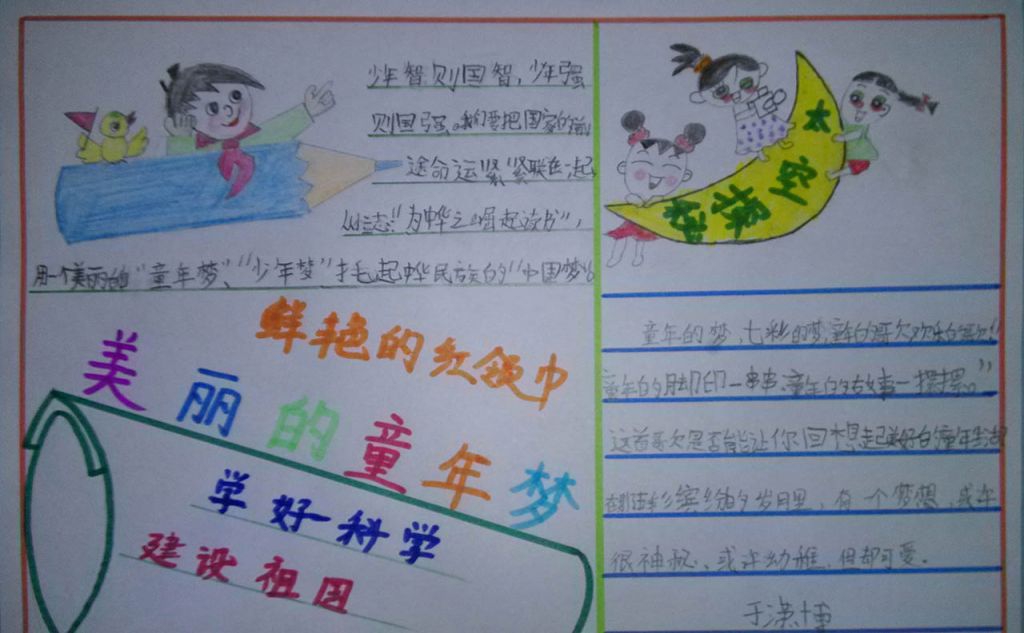 少年智则国智，少年强
则国强。我们要把国家的前
途命运紧紧联在一起，
立志“为中华之崛起读书”，
用一个美丽的“童年梦”、“少年梦”托起中华民族的“中国梦”。
鲜艳的红领巾
美丽的童年梦
学好科学
建设祖国
太空探秘
童年的梦，七彩的梦，童年的歌欢乐的歌，
童年的脚印一串串，童年的故事一摞摞。”
这首歌是否能让你回想起美好的童年生活
在那五彩缤纷的岁月里，有一个梦想，或许
很神秘、或许幼稚，但却可爱。